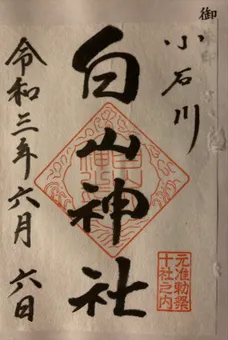 小石川
白山神社
令和三年六月六日
元准勅祭
十社之内
御